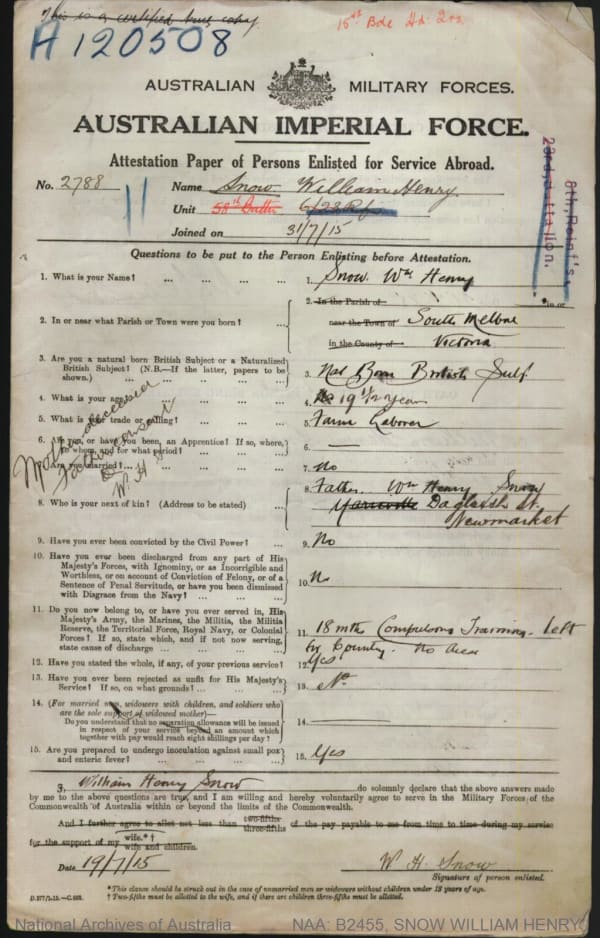 This is a certified true copy
15th Bde Hd: Qrs.
H120508
AUSTRALIAN MILITARY FORCES.
AUSTRALIAN IMPERIAL FORCE.
Attestation Paper of Persons Enlisted for Service Abroad.
No. 2788
Name Snow William Henry.
Unit 58th Battn 6/23 Rfs
Joined on 31/7/15
8th, Reinf's,
23rd Battalion.
Questions to be put to the Person Enlisting before Attestation.
1. What is your Name? ... ... ... ...
1. Snow. Wm Henry
2. In or near what Parish or Town were you born? ...
2. In the Parish of in or
near the Town of South Melbne
in the County of Victoria
3. Are you a natural born British Subject or a Naturalized
British Subject? (N.B.—If the latter, papers to be
shown.) ... ... ... ... ...
3. Nat Born British Subj.
4. What is your age? ... ... ...
4. 19 1/2 years
5. What is your trade or calling? ... ... ...
5. Farm Laborer
6. Are you, or have you been, an Apprentice? If so, where,
to whom, and for what period? ... ...
6. —
7. Are you married? ... ... ...
7. No
Mother deceased
Father consent
W. H. S
8. Who is your next of kin? (Address to be stated) ...
8. Father. Wm Henry Snow
Yarraville St.
Newmarket
9. Have you ever been convicted by the Civil Power? ...
9. No
10. Have you ever been discharged from any part of His
Majesty's Forces, with Ignominy, or as Incorrigible and
Worthless, or on account of Conviction of Felony, or of a
Sentence of Penal Servitude, or have you been dismissed
with Disgrace from the Navy? ... ... ...
10. No
11. Do you now belong to, or have you ever served in, His
Majesty's Army, the Marines, the Militia, the Militia
Reserve, the Territorial Force, Royal Navy, or Colonial
Forces? If so, state which, and if not now serving,
state cause of discharge ... ... ...
11. 18 mths Compulsory Training. Left
for Country. No Area
12. Have you stated the whole, if any, of your previous service?
12. Yes
13. Have you ever been rejected as unfit for His Majesty's
Service? If so, on what grounds? ... ...
13. No
14. (For married men, widowers with children, and soldiers who
are the sole support of widowed mother)—
Do you understand that no separation allowance will be issued
in respect of your service beyond an amount which
together with pay would reach eight shillings per day?
14. —
15. Are you prepared to undergo inoculation against small pox
and enteric fever? ... ... ... ...
15. Yes
I, William Henry Snow do solemnly declare that the above answers made
by me to the above questions are true, and I am willing and hereby voluntarily agree to serve in the Military Forces of the
Commonwealth of Australia within or beyond the limits of the Commonwealth.
And I further agree to allot not less than two-fifths three-fifths of the pay payable to me from time to time during my service
for the support of my wife.*† wife and children.
Date 19/7/15
W. H. Snow
Signature of person enlisted.
*This clause should be struck out in the case of unmarried men or widowers without children under 18 years of age.
† Two-fifths must be allotted to the wife, and if there are children three-fifths must be allotted.
National Archives of Australia
NAA: B2455, SNOW WILLIAM HENRY